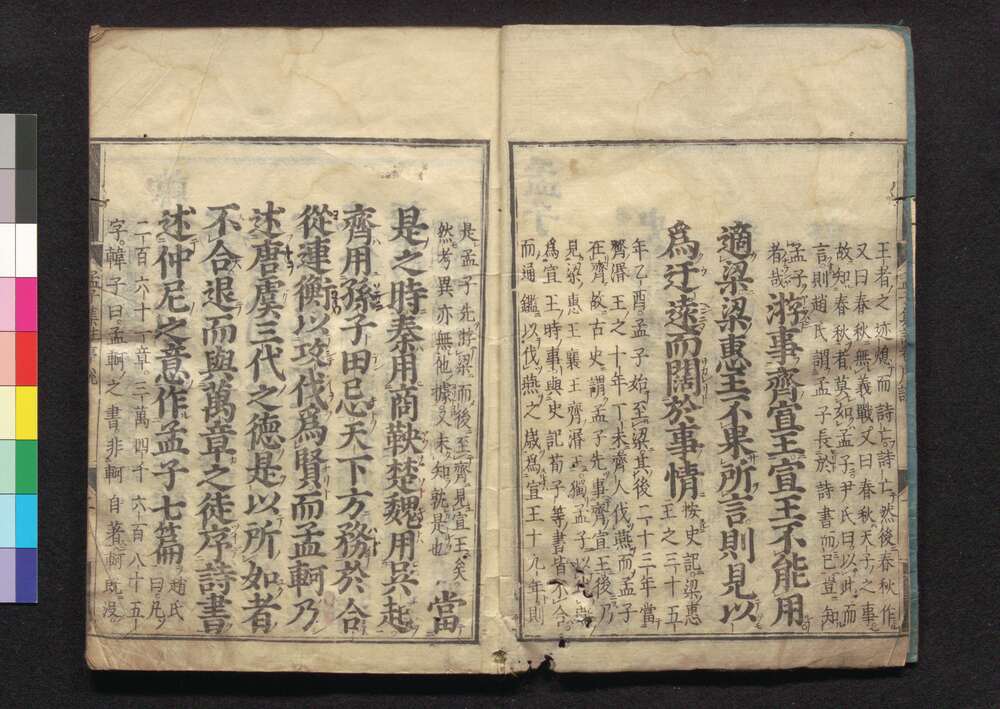 王者之迹熄而詩亡詩亡然後春秋作
又曰春秋無義戰又曰春秋天子之事
故知春秋者莫如孟子尹氏曰以此而
言則趙氏謂孟子長於詩書而已豈知
孟子
者哉
游事齊宣王宣王不能用
適梁梁惠王不果所言則見以
爲迂遠而闊於事情
按史記梁惠
王之三十五
年乙酉孟子始至梁其後二十三年當
齊湣王之十年丁未齊人伐燕而孟子
在齊故古史謂孟子先事齊宣王後乃
見梁惠王襄王齊湣王獨孟子以伐燕
爲宣王時事與史記荀子等書皆不合
而通鑑以伐燕之歲爲宣王十九年則
是孟子先游梁而後至齊見宣王矣
然考異亦無他據又未知孰是也
當
是之時秦用商鞅楚魏用吳起
齊用孫子田忌天下方務於合
從連衡以攻伐爲賢而孟軻乃
述唐虞三代之德是以所如者
不合退而與萬章之徒序詩書
述仲尼之意作孟子七篇
趙氏
曰凡
二百六十一章三萬四千六百八十五
字韓子曰孟軻之書非軻自著軻既沒